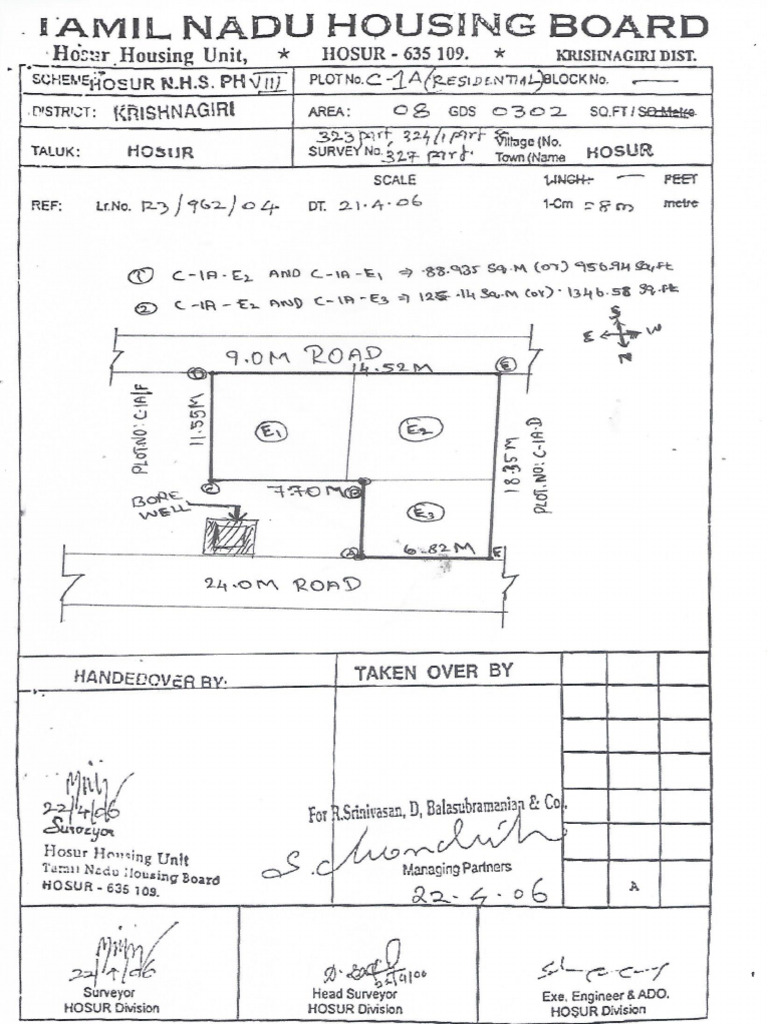 TAMIL NADU HOUSING BOARD
Hosur Housing Unit, * HOSUR - 635 109. * KRISHNAGIRI DIST.
SCHEME: HOSUR N.H.S. PH VIII PLOT No. C-1A (RESIDENTIAL) BLOCK No. —
DISTRICT: KRISHNAGIRI AREA: 08 GDS 0302 SQ.FT / SQ Metre
323 part, 324/1 part &
TALUK: HOSUR SURVEY No. 327 part. Village (No. Town (Name HOSUR
SCALE 1.INCH- — FEET
REF: Lr.No. R3/962/04 DT. 21.4.06 1-Cm = 8m metre
① C-1A-E2 AND C-1A-E1 ⇒ 88.935 SQ.M (OR) 956.94 Sq.ft
② C-1A-E2 AND C-1A-E3 ⇒ 125.14 Sq.M (or) 1346.58 Sq.ft
S
E W
N
9.0M ROAD
14.52M
D E
PLOT.NO: C-1A/F
11.55M
E1 E2
18.35M
PLOT.NO: C-1A-D
C 7.70M B
BORE
WELL
E3
A 6.82M F
24.0M ROAD
HANDEDOVER BY: TAKEN OVER BY
22/4/06
Surveyor
Hosur Housing Unit
Tamil Nadu Housing Board
HOSUR - 635 109.
For R.Srinivasan, D, Balasubramanian & Co.,
Managing Partners
22-4-06
A
Surveyor
HOSUR Division
Head Surveyor
HOSUR Division
Exe. Engineer & ADO.
HOSUR Division